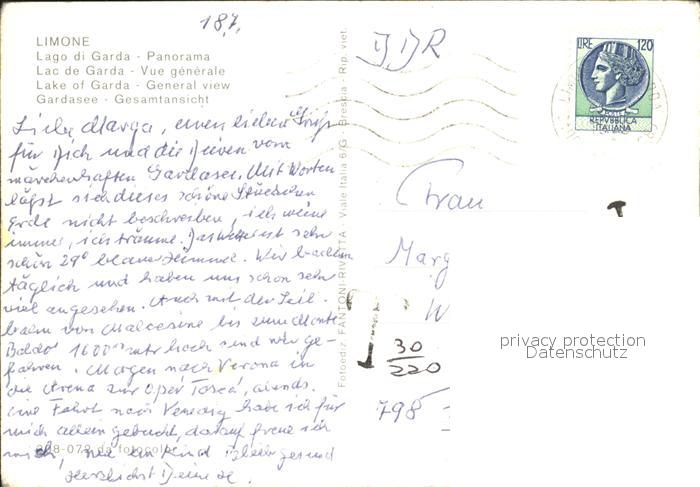 18.7.
LIMONE
Lago di Garda - Panorama
Lac de Garda - Vue générale
Lake of Garda - General view
Gardasee - Gesamtansicht
Liebe Marga, einen lieben Gruß
für Dich und die Deinen vom
märchenhaften Gardasee. Mit Worten
läßt sich dieses schöne Stückchen
Erde nicht beschreiben, ich meine
immer, ich träume. Das Wetter ist sehr
schön 29° blauer Himmel. Wir baden
täglich und haben uns schon sehr
viel angesehen. Auch mit der Seil-
bahn von Malcesine bis zum Monte
Baldo 1600 mtr hoch sind wir ge-
fahren. Morgen nach Verona in
die Arena zur Oper Tosca, abends.
Eine Fahrt nach Venedig habe ich für
mich allein gebucht, darauf freue ich
mich, wie ein Kind. Bleib gesund
Herzlichst Deine
da fotocolor
Fotoediz. FANTONI-RIVETTA - Viale Italia 6/G - Brescia - Rip. viet.
DDR
LIRE 120
POSTE
REPVBBLICA
ITALIANA
Frau
Marg
W
30
220
798
privacy protection
Datenschutz